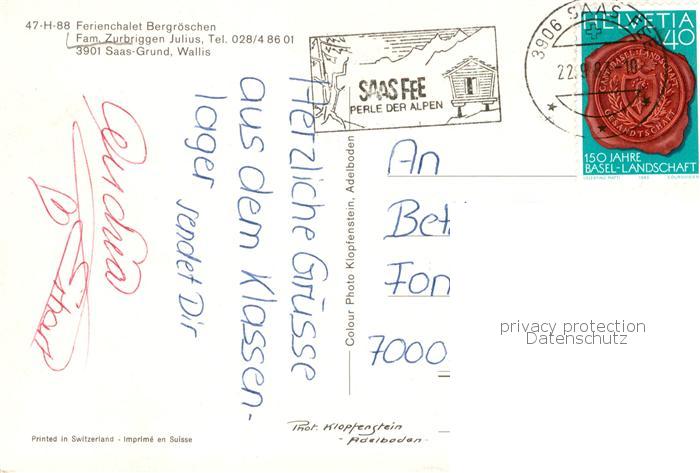 47-H-88 Ferienchalet Bergröschen
Fam. Zurbriggen Julius, Tel. 028/4 86 01
3901 Saas-Grund, Wallis
SAAS FEE
PERLE DER ALPEN
3906 SAAS FEE
HELVETIA
40
150 JAHRE
BASEL-LANDSCHAFT
Herzliche Grüsse
aus dem Klassen-
lager sendet Dir
An
Bet
Fon
7000
privacy protection
Datenschutz
Colour Photo Klopfenstein, Adelboden
Phot. Klopfenstein
- Adelboden -
Printed in Switzerland - Imprimé en Suisse